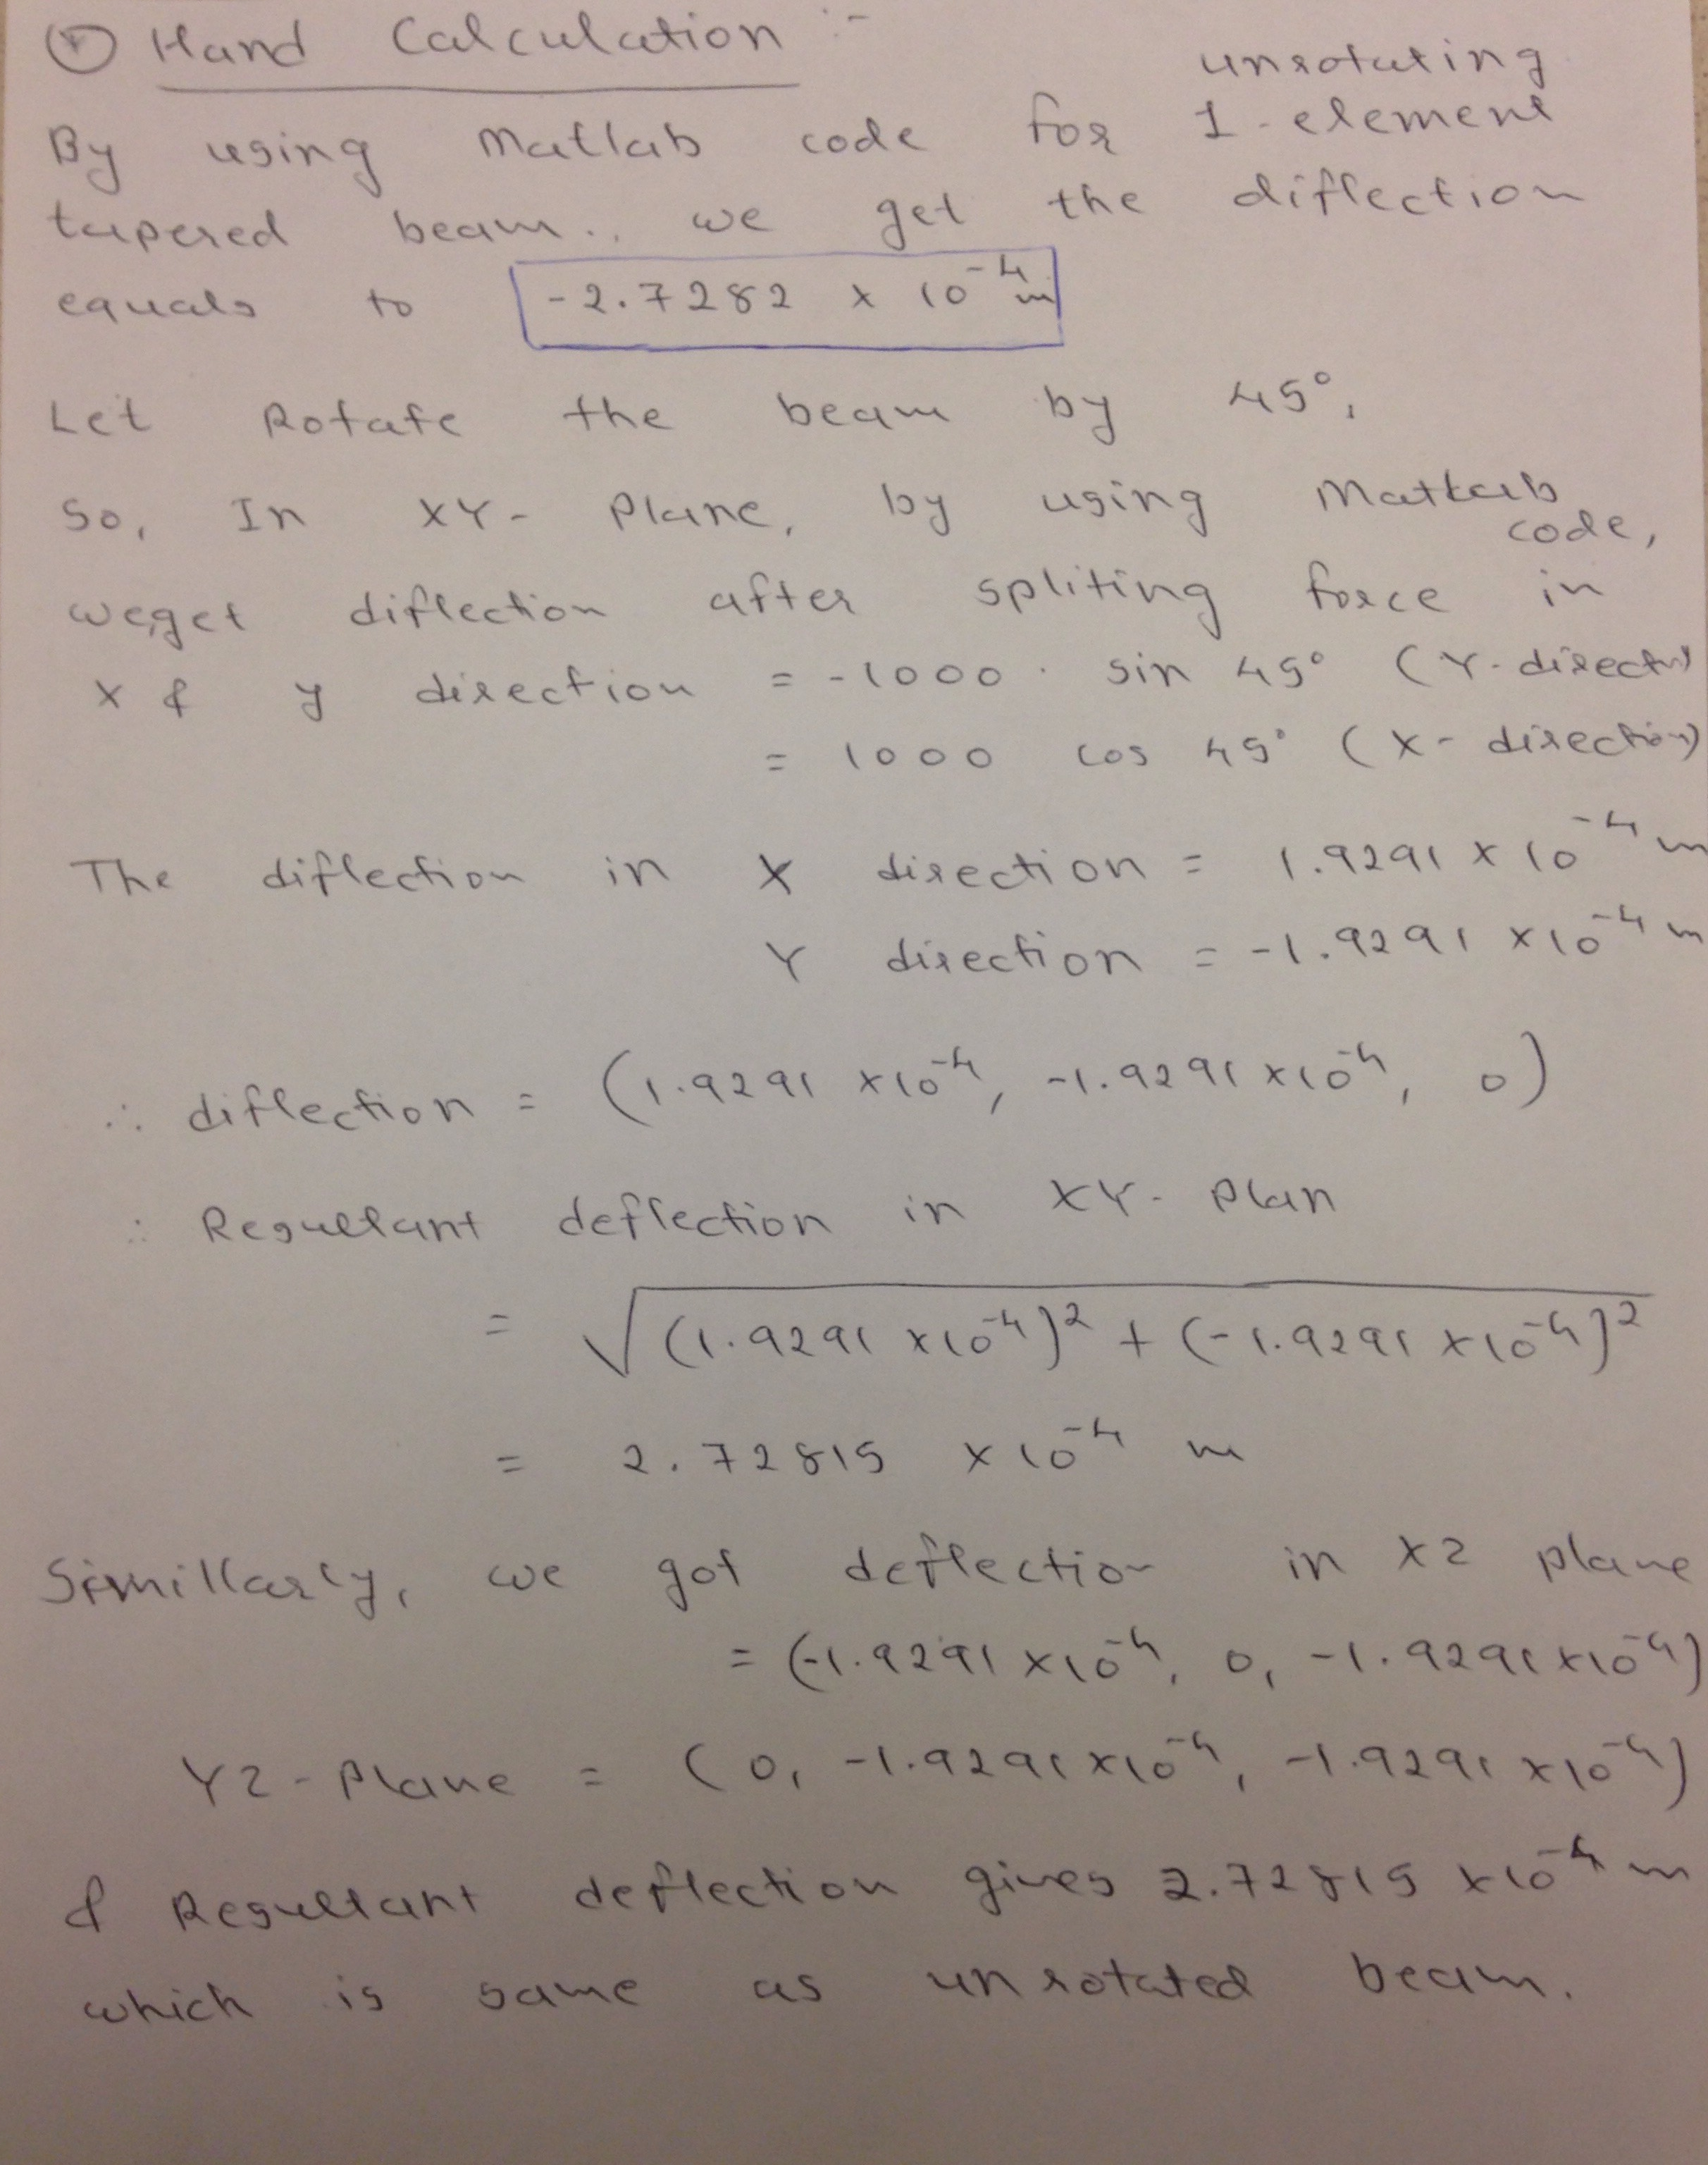 Hand Calculation :-
unrotating
By using Matlab code for 1-element
tapered beam.. we get the diflection
equals to -2.7282 x 10^-4 m
Let Rotate the beam by 45°,
So, In XY- Plane, by using Matlab
code,
we,get diflection after spliting force in
x & y direction = -1000 . sin 45° (Y-direction)
= 1000 cos 45° (X-direction)
The diflection in X direction = 1.9291 x 10^-4 m
Y direction = -1.9291 x10^-4 m
∴ diflection = (1.9291 x10^-4, -1.9291 x10^-4, 0)
∴ Resultant deflection in XY- Plan
= √((1.9291 x10^-4)^2 + (-1.9291 x10^-4)^2)
= 2.72815 x10^-4 m
Simillarly, we got deflection in XZ plane
= (-1.9291 x10^-4, 0, -1.9291 x10^-4)
YZ-Plane = (0, -1.9291x10^-4, -1.9291 x10^-4)
& Resultant deflection gives 2.72815 x10^-4 m
which is same as unrotated beam.